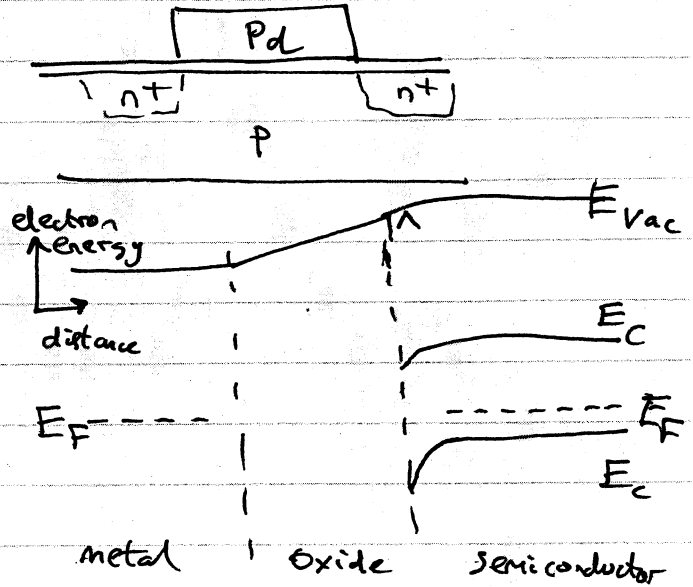 Pd
n+ n+
P
E Vac
electron
energy
distance
EC
EF EF
Ec
metal oxide semiconductor